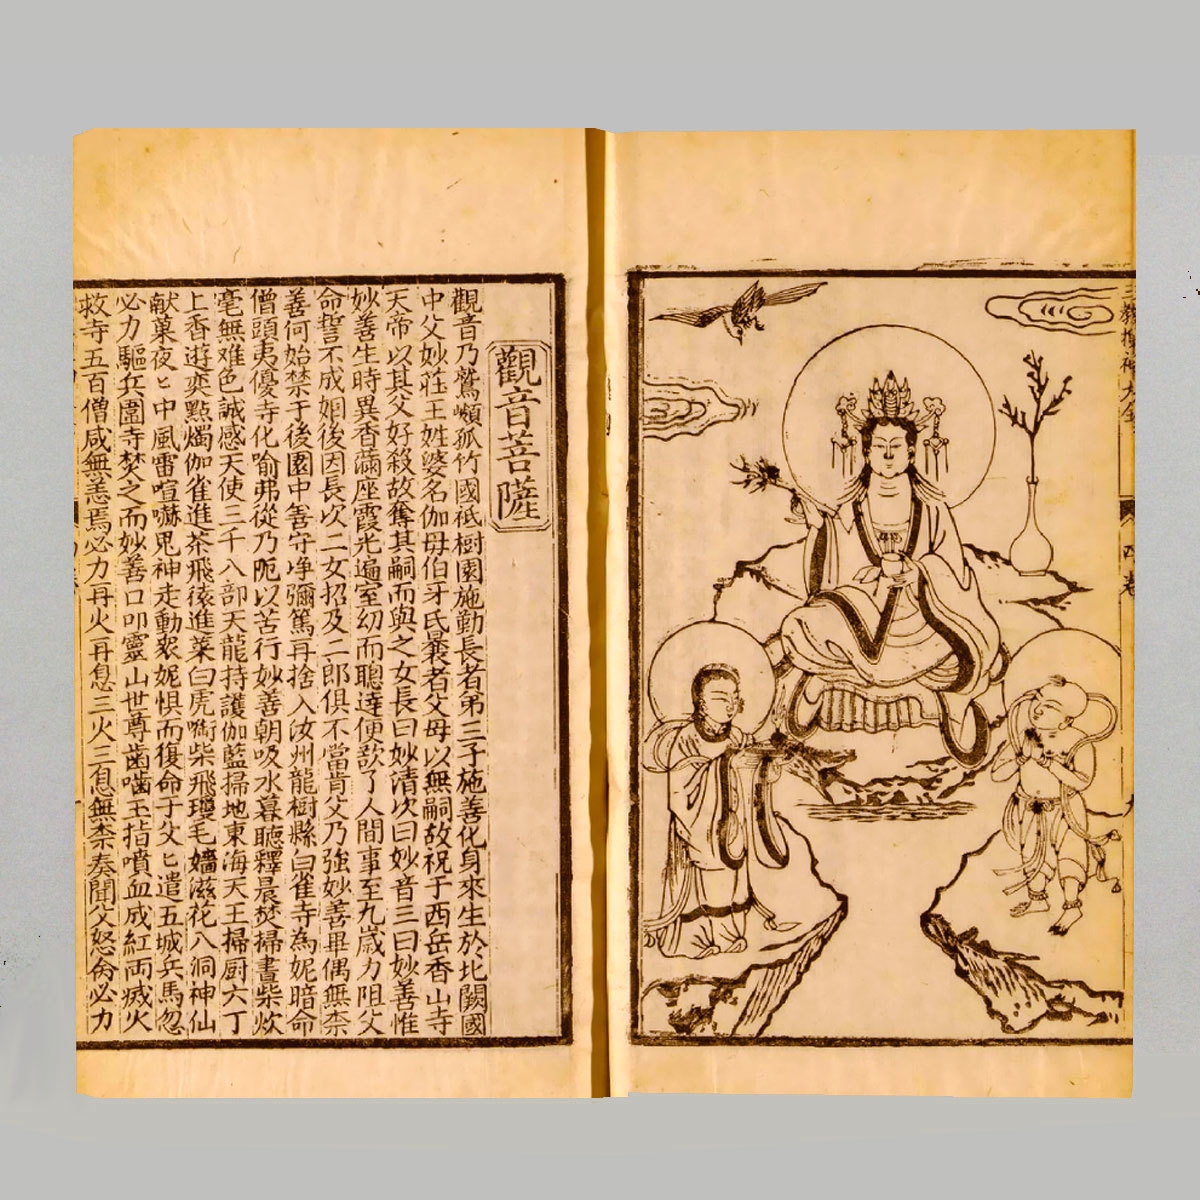 三教搜神大全
四卷
觀音菩薩
觀音乃鷲嶺孤竹國祇樹園施勤長者第三子施善化身來生於北闕國
中父妙莊王姓婆名伽母伯牙氏曩者父母以無嗣故祝于西岳香山寺
天帝以其父好殺故奪其嗣而與之女長曰妙清次曰妙音三曰妙善惟
妙善生時異香滿座霞光遍室幼而聰達便欲了人間事至九歲力阻父
命誓不成姻後因長次二女招及二郎俱不當肯父乃強妙善畢偶無柰
善何始禁于後園中善守净彌篤再捨入汝州龍樹縣白雀寺為妮暗命
僧頭夷優寺化喻弗從乃阨以苦行妙善朝吸水暮聽釋晨焚掃晝柴炊
毫無难色誠感天使三千八部天龍持護伽藍掃地東海天王掃厨六丁
上香遊奕點燭伽雀進茶飛猿進菜白虎啣柴飛瓊毛嬙滋花八洞神仙
献菓夜匕中風雷喧嚇鬼神走動衆妮惧而復命于父匕遣五城兵馬忽
必力驅兵圍寺焚之而妙善口叩靈山世尊齒嚙玉指噴血成紅雨滅火
救寺五百僧咸無恙焉必力再火再息三火三息無柰奏聞父怒僉必力